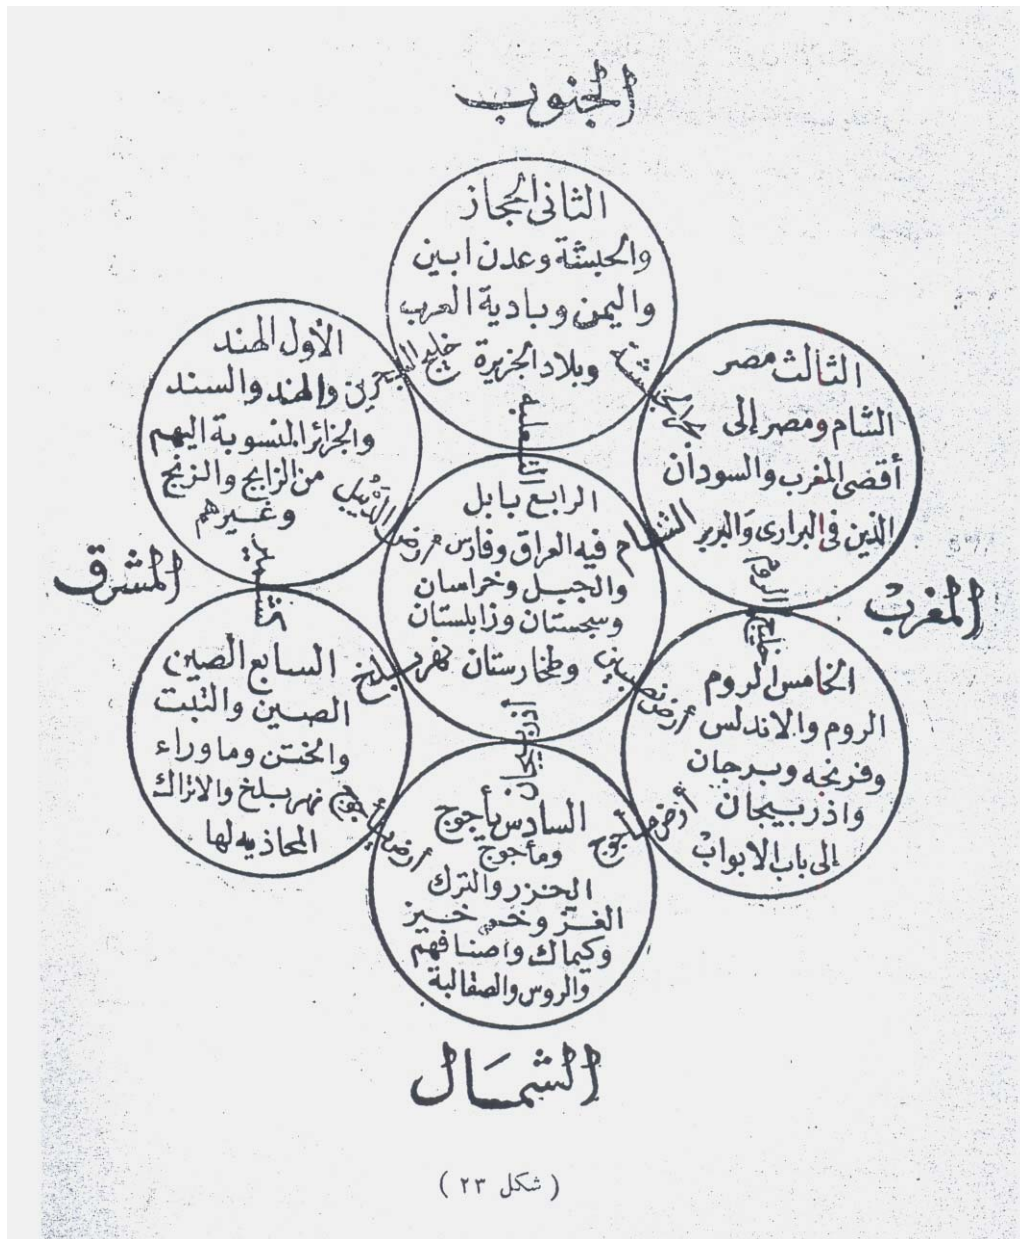 الجنوب
الثاني الحجاز
والحبشة وعدن ابين
واليمن وبادية العرب
وبلاد الجزيرة
الأول الهند
والهند والسند
والجزائر المنسوبة اليهم
من الزابج والزنج
وغيرهم
الدّيبل
الثالث مصر
الشام ومصر إلى
أقصى المغرب والسودان
الذين في البرارى والبربر
الثعلبية
الشام
الرابع بابل
فيه العراق وفارس
والجبل وخراسان
وسجستان وزابلستان
وطخارستان
نهر بلخ
المشرق
المغرب
خليج الروم
السابع الصين
الصين والتبت
والختن وما وراء
نهر بلخ والاتراك
المحاذيه لها
الخامس الروم
الروم والاندلس
وفرنجه وبرجان
واذربيجان
إلى باب الابواب
أرض نصيبين
أذربيجان
السادس يأجوج
ومأجوج
الخزر والترك
الغز
وكيماك واصنافهم
والروس والصقالبة
الشمال
( شكل ٢٣ )